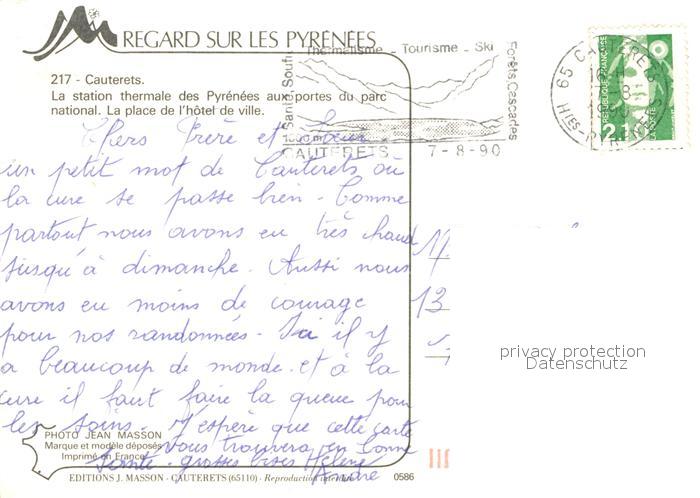 REGARD SUR LES PYRÉNÉES
217 - Cauterets.
La station thermale des Pyrénées aux portes du parc
national. La place de l'hôtel de ville.
Thermalisme - Tourisme - Ski
Forêts, Cascades
Santé, Souffle
1000m
CAUTERETS 7-8-90
65 CAUTERETS
16 H
7-8
1990
HTES-PYRENEES
REPUBLIQUE FRANÇAISE
2,10
POSTE
Chers Frère et Sœur
un petit mot de Cauterets où
la cure se passe bien. Comme
partout nous avons eu très chaud
jusqu'à dimanche. Aussi nous
avons eu moins de courage
pour nos randonnées. Ici il y
a beaucoup de monde et à la
cure il faut faire la queue pour
les soins. J'espère que cette carte
vous trouvera en bonne
santé. grosses bises Hélène
André
13
PHOTO JEAN MASSON
Marque et modèle déposés
Imprimé en France
EDITIONS J. MASSON - CAUTERETS (65110) - Reproduction interdite
0586
privacy protection
Datenschutz